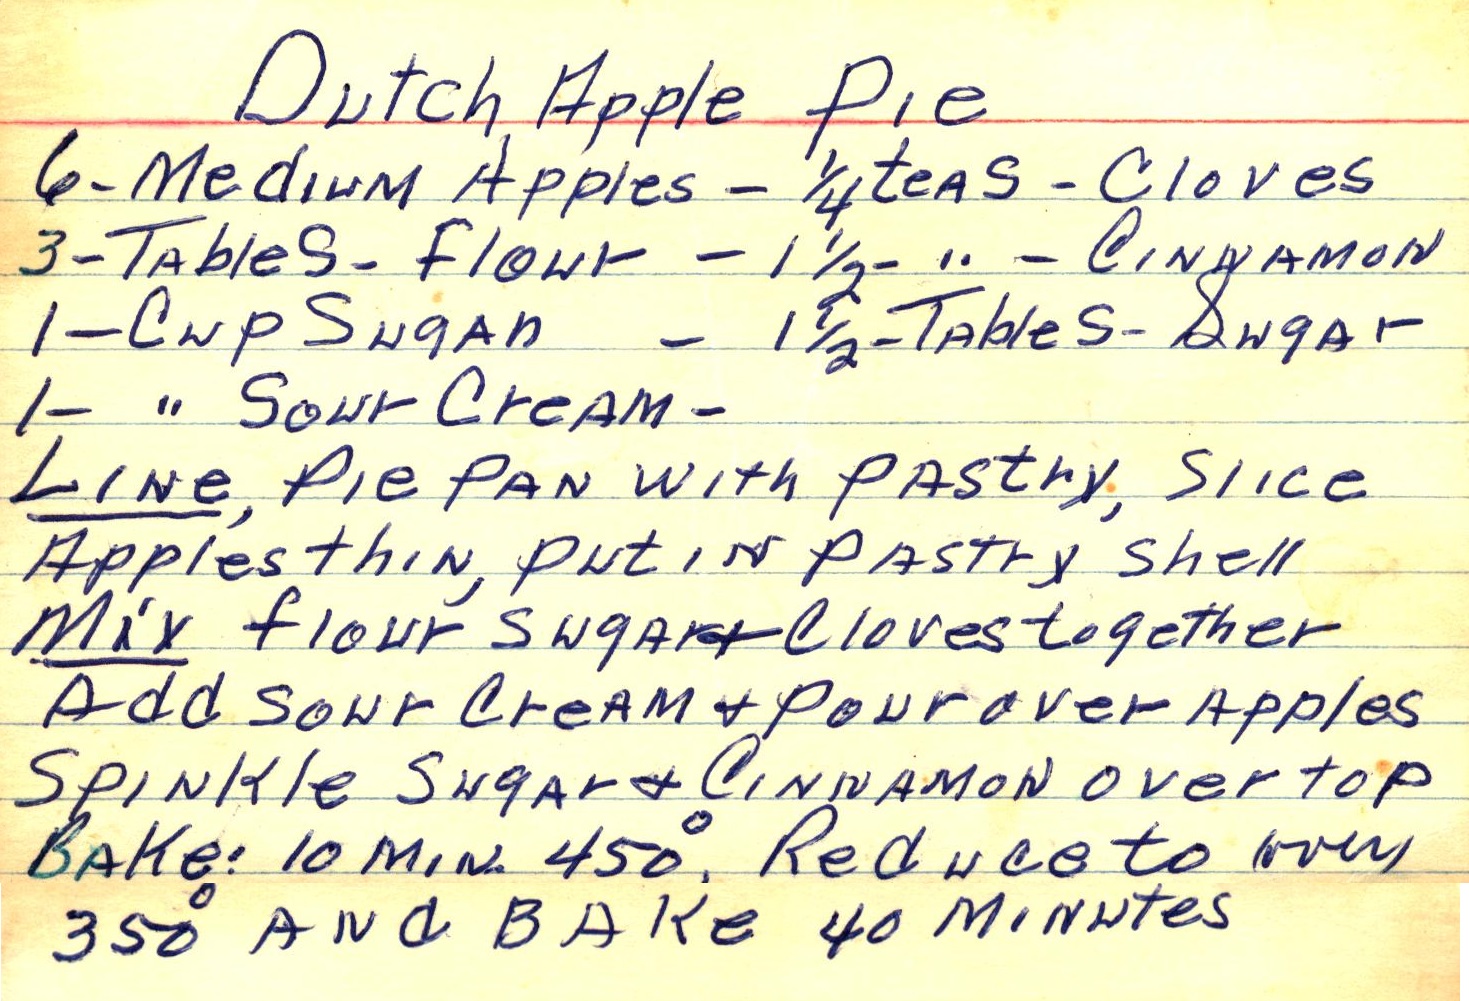 Dutch Apple Pie
6-Medium Apples - 1/4 teas - Cloves
3-Tables- flour - 1 1/2- " - Cinnamon
1-Cup Sugar - 1 1/2-Tables- Sugar
1- " Sour Cream-
Line, Pie Pan with pastry, Slice
Apples thin, put in pastry shell
Mix flour sugar & Cloves together
Add sour Cream & pour over Apples
Spinkle Sugar & Cinnamon over top
Bake: 10 Min. 450°. Reduce to
350° And BAKe 40 Minutes